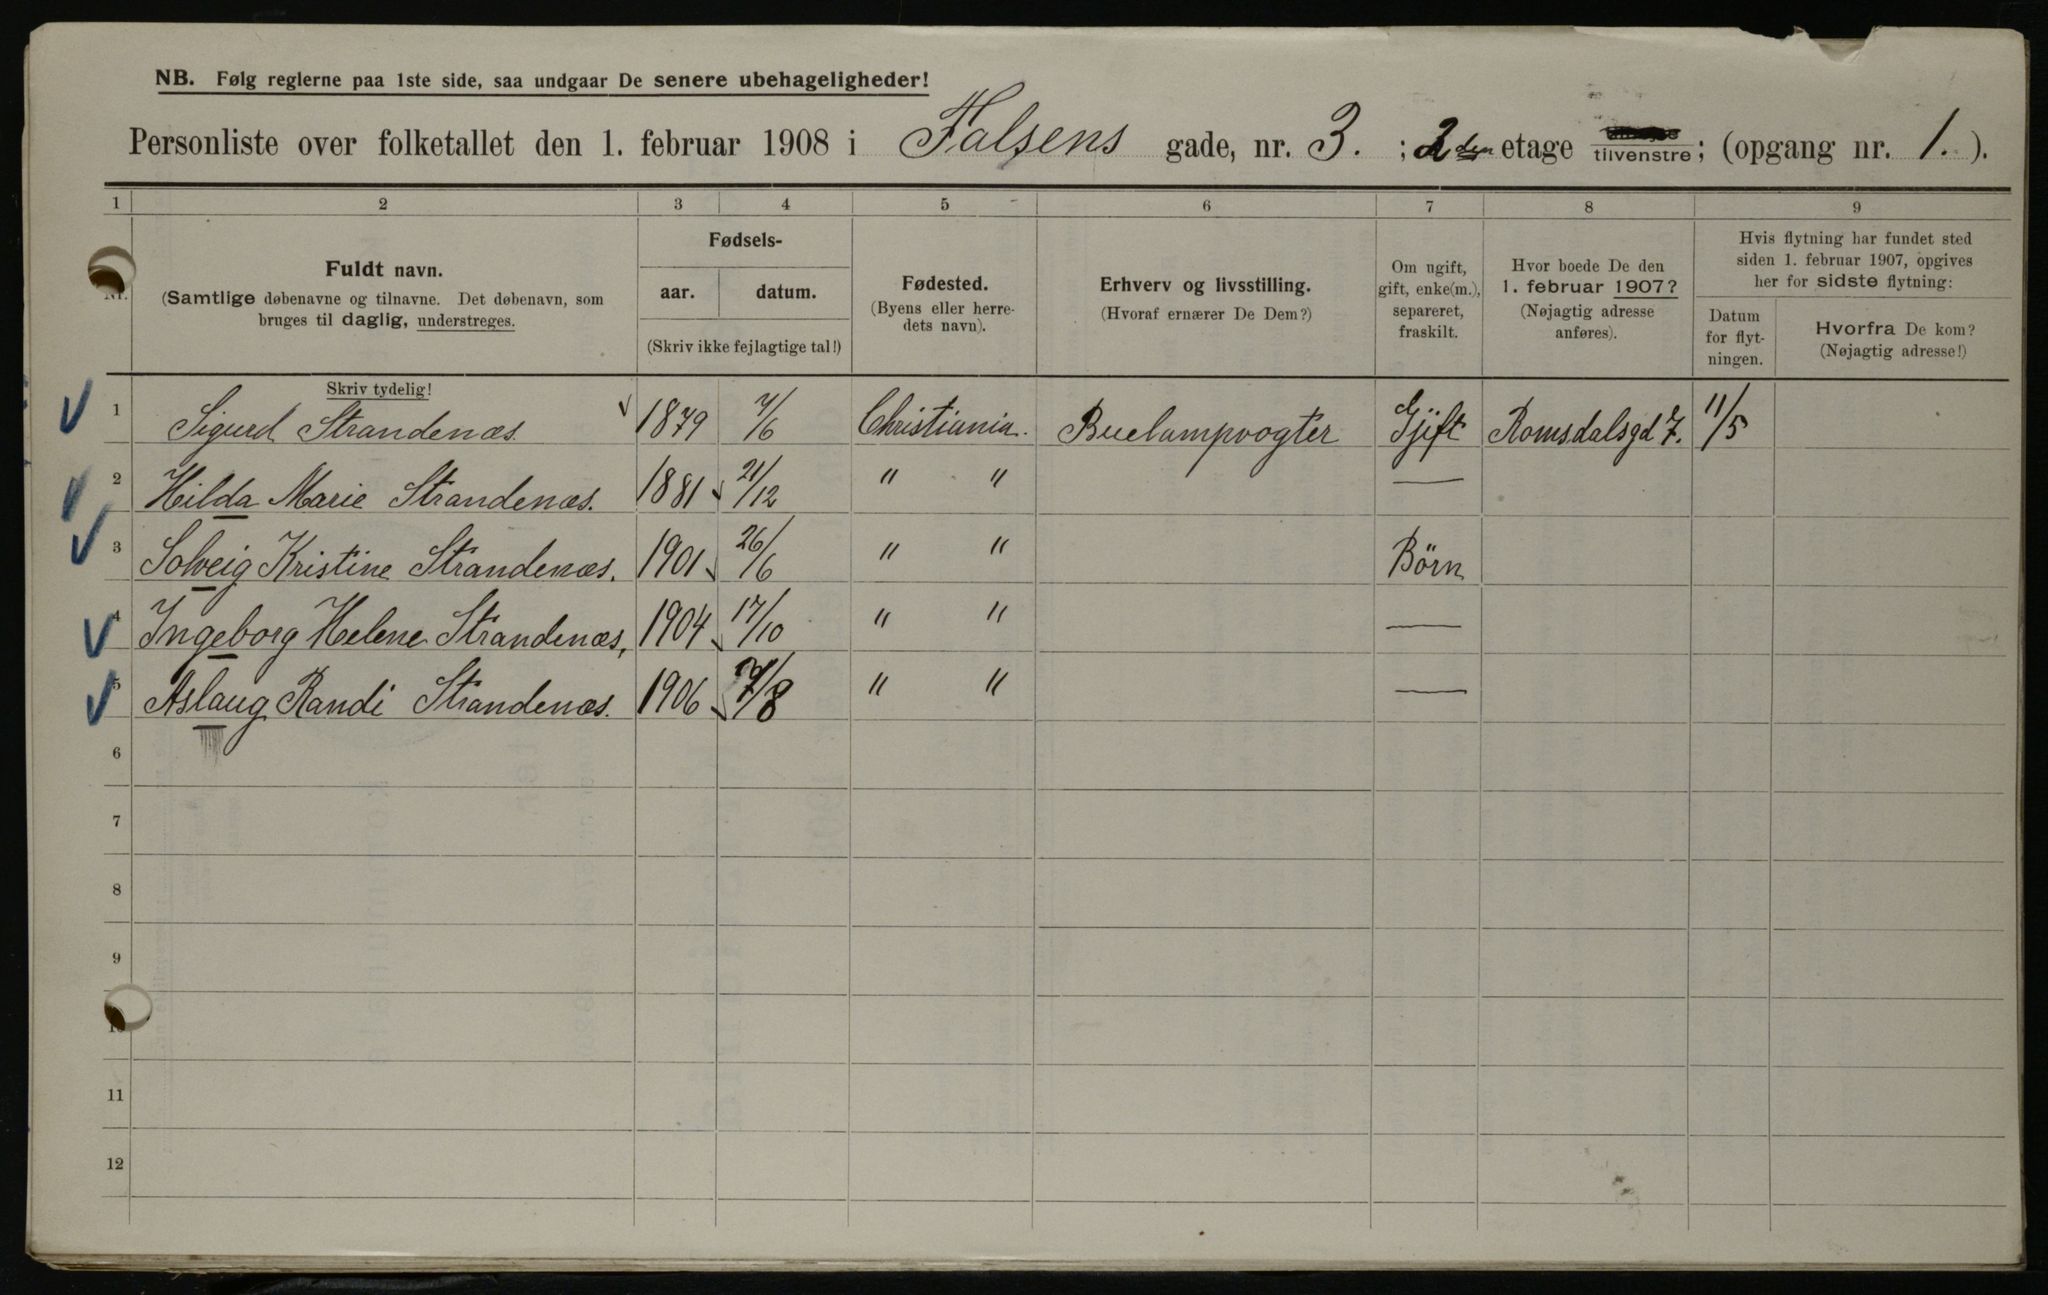 NB. Følg reglerne paa 1ste side, saa undgaar De senere ubehageligheder!
Personliste over folketallet den 1. februar 1908 i Falsens gade, nr. 3. ; 2den etage tilvenstre; (opgang nr. 1. ).
1 2 3 4 5 6 7 8 9
Nr.
Fuldt navn.
(Samtlige døbenavne og tilnavne. Det døbenavn, som
bruges til daglig, understreges.
Fødsels-
aar. datum.
(Skriv ikke fejlagtige tal!)
Fødested.
(Byens eller herre-
dets navn).
Erhverv og livsstilling.
(Hvoraf ernærer De Dem?)
Om ugift,
gift, enke(m.),
separeret,
fraskilt.
Hvor boede De den
1. februar 1907?
(Nøjagtig adresse
anføres).
Hvis flytning har fundet sted
siden 1. februar 1907, opgives
her for sidste flytning:
Datum
for flyt-
ningen.
Hvorfra De kom?
(Nøjagtig adresse!)
Skriv tydelig!
1 Sigurd Strandenæs 1879 7/6 Christiania. Buelampvogter Gjift Romsdalsgd 7. 11/5
2 Hilda Marie Strandenæs. 1881 21/12 " " —
3 Solveig Kristine Strandenæs. 1901 26/6 " " Börn
4 Ingeborg Helene Strandenæs, 1904 17/10 " " —
5 Aslaug Randi Strandenæs. 1906 /8 " " —
6
7
8
9
10
11
12